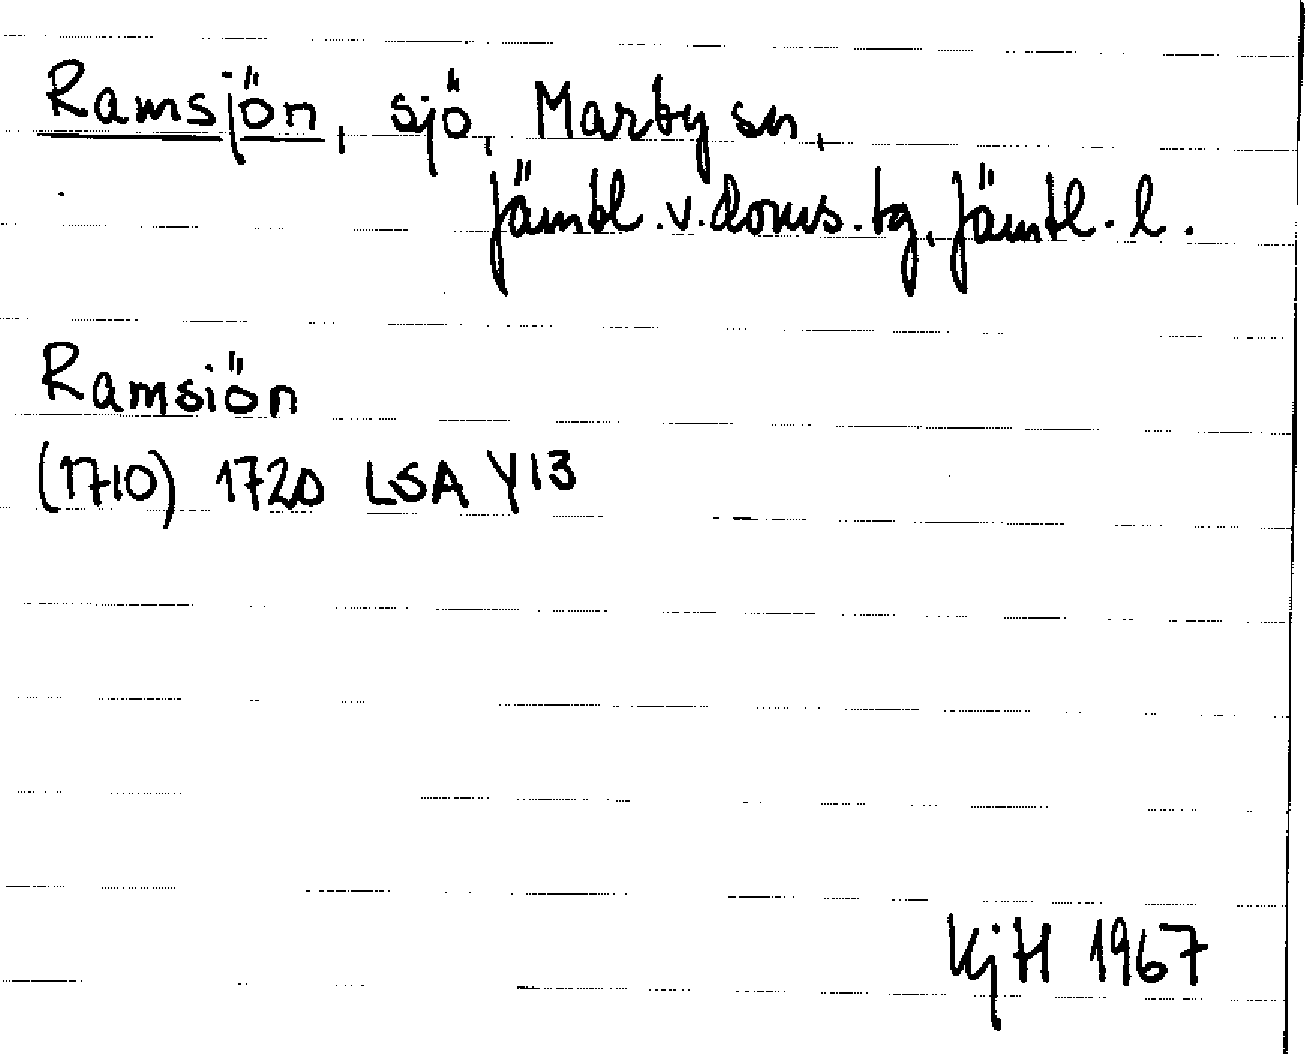 Ramsjön, sjö, Marby sn,
Jämtl. v. doms. tg, Jämtl. l.
Ramsiön
(1710) 1720 LSA Y13
KjH 1967